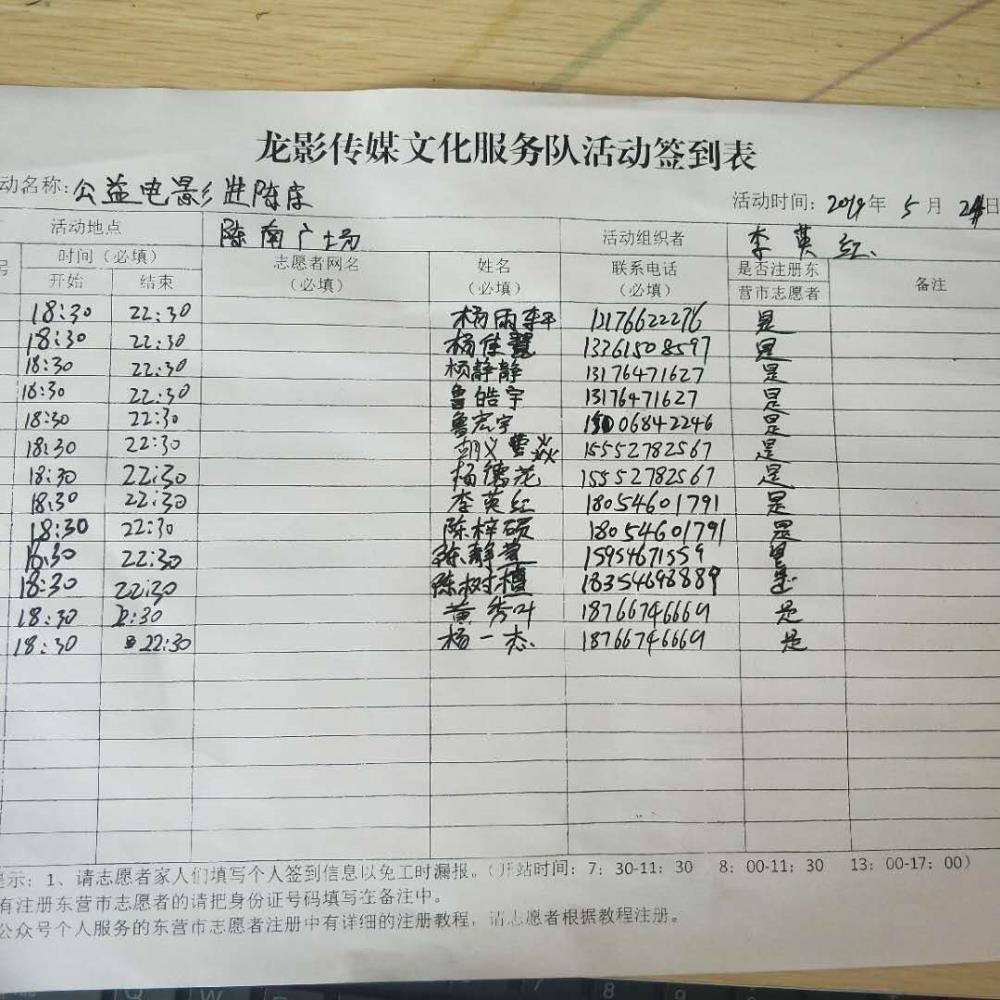 龙影传媒文化服务队活动签到表
动名称:公益电影进陈庄 活动时间:2019年5月24日
活动地点 陈南广场 活动组织者 李英红
号 时间(必填) 志愿者网名 姓名 联系电话 是否注册东 备注
开始 结束 (必填) (必填) (必填) 营市志愿者
18:30 22:30 杨雨轩 13176622276 是
18:30 22:30 杨佳慧 13261508597 是
18:30 22:30 杨静静 13176471627 是
18:30 22:30 鲁皓宇 13176471627 是
18:30 22:30 鲁宏宇 15006842246 是
18:30 22:30 胡义 15552782567 是
18:30 22:30 杨德花 15552782567 是
18:30 22:30 李英红 18054601791 是
18:30 22:30 陈梓硕 18054601791 是
18:30 22:30 陈静 15954671559 是
18:30 22:30 陈树檀 18354698889 是
18:30 2:30 黄秀叶 18766746669 是
18:30 22:30 杨一杰 18766746669 是
提示:1、请志愿者家人们填写个人签到信息以免工时漏报。(开站时间:7:30-11:30 8:00-11:30 13:00-17:00)
有注册东营市志愿者的请把身份证号码填写在备注中。
公众号个人服务的东营市志愿者注册中有详细的注册教程,请志愿者根据教程注册。